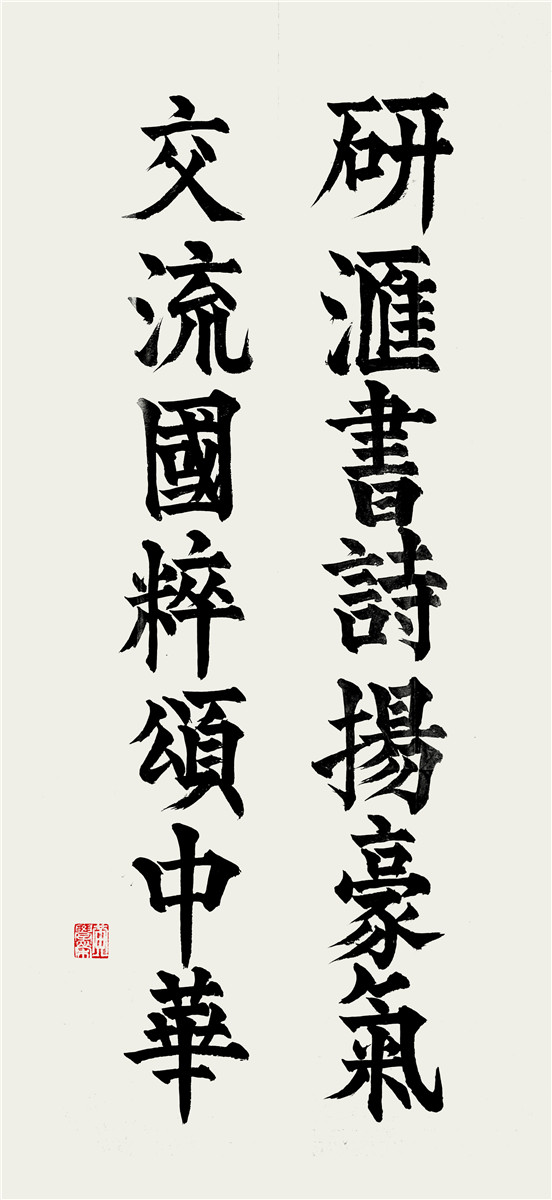 研滙書詩揚豪氣
交流國粹頌中華